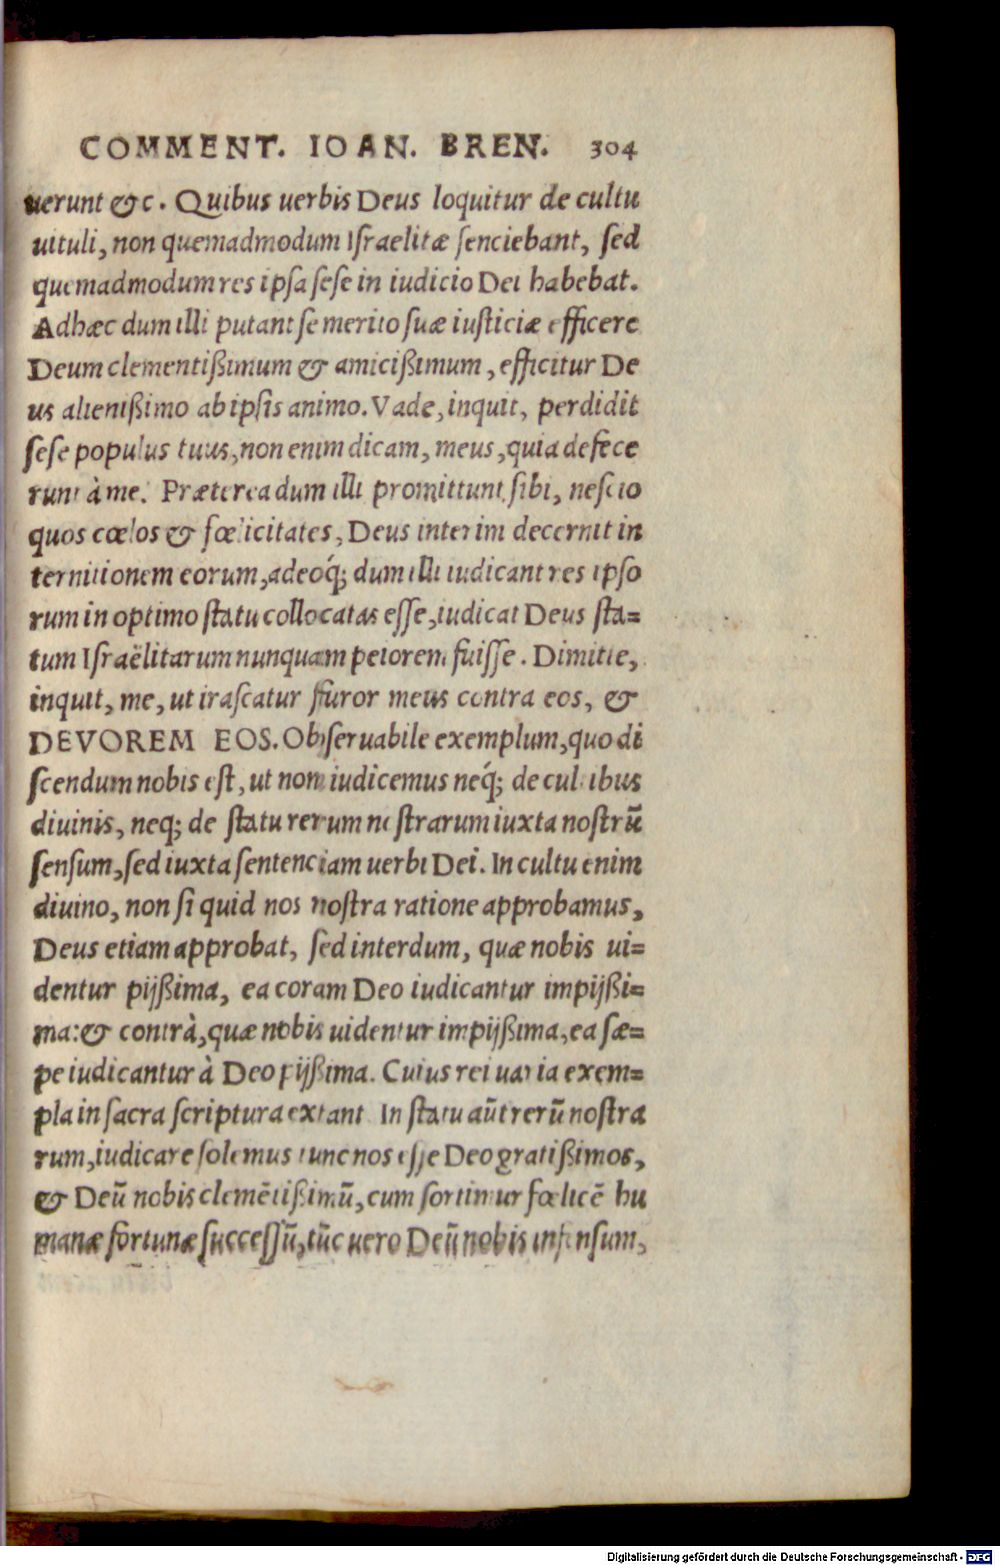 COMMENT. IOAN. BREN. 304
uerunt &c. Quibus uerbis Deus loquitur de cultu
uituli, non quemadmodum Iſraelitæ ſenciebant, ſed
quemadmodum res ipſa ſeſe in iudicio Dei habebat.
Adhæc dum illi putant ſe merito ſuæ iuſticiæ efficere
Deum clementißimum & amicißimum, efficitur De
us alienißimo ab ipſis animo. Vade, inquit, perdidit
ſeſe populus tuus, non enim dicam, meus, quia defece
runt à me. Præterea dum illi promittunt ſibi, neſcio
quos cœlos & fœlicitates, Deus interim decernit in
ternitionem eorum, adeoq́; dum illi iudicant res ipſo
rum in optimo ſtatu collocatas eſſe, iudicat Deus ſta=
tum Iſraëlitarum nunquam peiorem fuiſſe. Dimitte,
inquit, me, ut iraſcatur furor meus contra eos, &
DEVOREM EOS. Obſeruabile exemplum, quo di
ſcendum nobis eſt, ut non iudicemus neq́; de cultibus
diuinis, neq; de ſtatu rerum noſtrarum iuxta noſtrū
ſenſum, ſed iuxta ſentenciam uerbi Dei. In cultu enim
diuino, non ſi quid nos noſtra ratione approbamus,
Deus etiam approbat, ſed interdum, quæ nobis ui=
dentur pijßima, ea coram Deo iudicantur impijßi=
ma: & contrà, quæ nobis uidentur impijßima, ea ſæ=
pe iudicantur à Deo pijßima. Cuius rei uaria exem=
pla in ſacra ſcriptura extant In ſtatu aūt rerū noſtra
rum, iudicare ſolemus tunc nos eſſe Deo gratißimos,
& Deū nobis clemētißimū, cum ſortimur fœlicē hu
manæ fortunæ ſucceſſū, tūc uero Deū nobis infenſum,
Digitalisierung gefördert durch die Deutsche Forschungsgemeinschaft - DFG